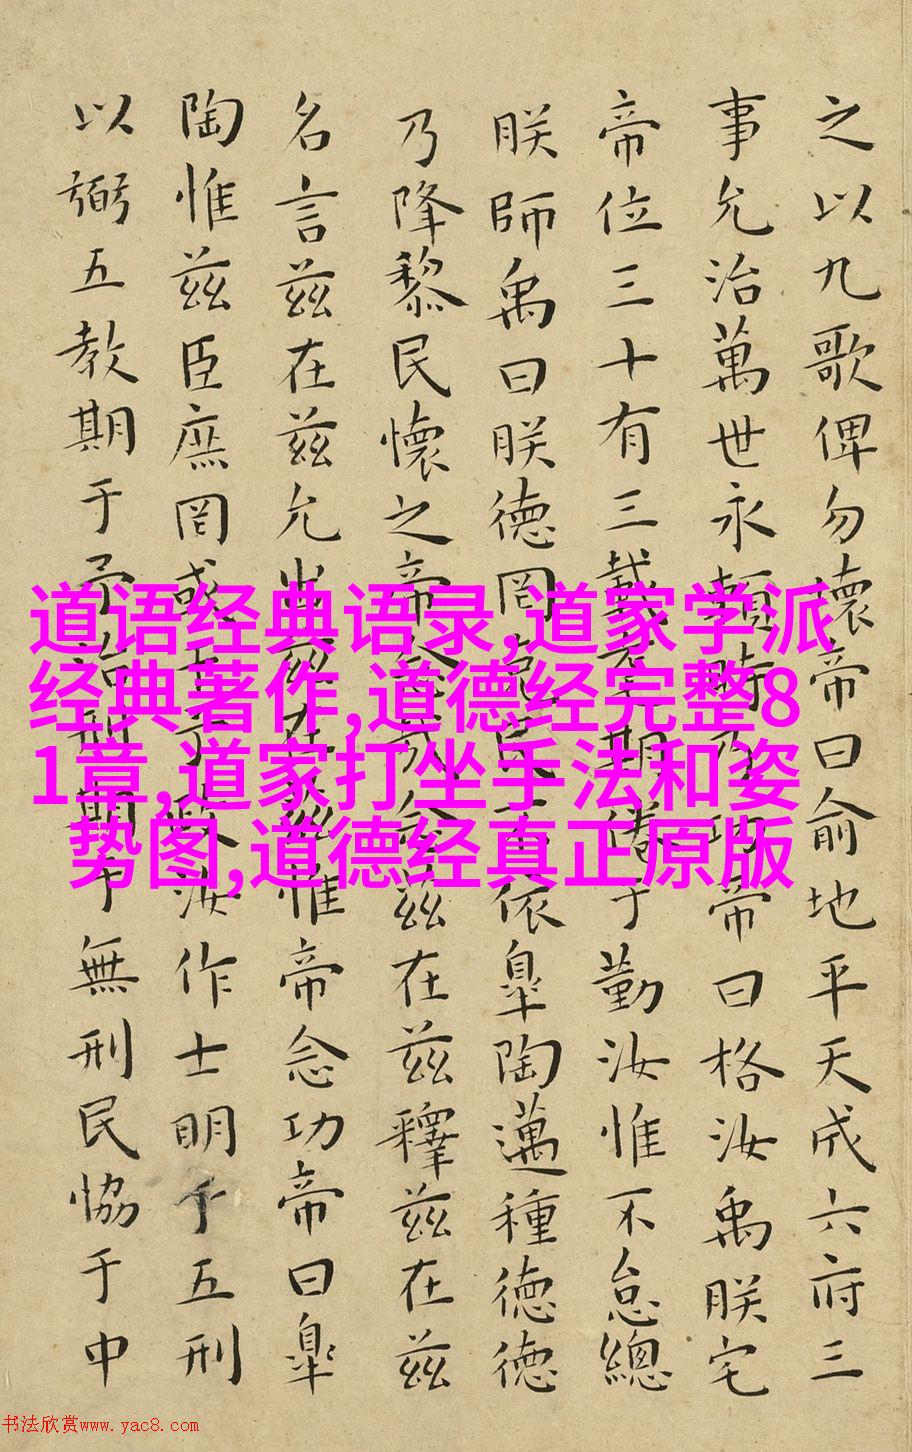 之以九歌俾勿壞帝曰俞地平天成六府三
事允治萬世永賴時乃功帝曰格汝禹朕宅
帝位三十有三載耄期倦于勤汝惟不怠總
朕師禹曰朕德罔克民不依臯陶邁種德德
乃降黎民懷之帝念哉念茲在茲釋茲在茲
名言茲在茲允出茲在茲惟帝念功帝曰臯
陶惟茲臣庶罔或干予政汝作士明于五刑
以弼五教期于予治刑期于無刑民協于中
道语经典语录,道家学派
经典著作,道德经完整8
1章,道家打坐手法和姿
势图,道德经真正原版
书法欣赏www.yac8.com